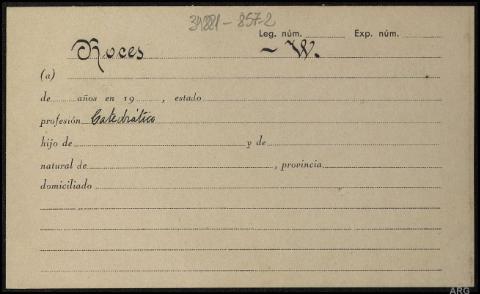 31881-857-2
Leg. núm. Exp. núm.
Roces - W.
(a)
de años en 19 , estado
profesión Catedrático
hijo de y de
natural de , provincia
domiciliado
ARG